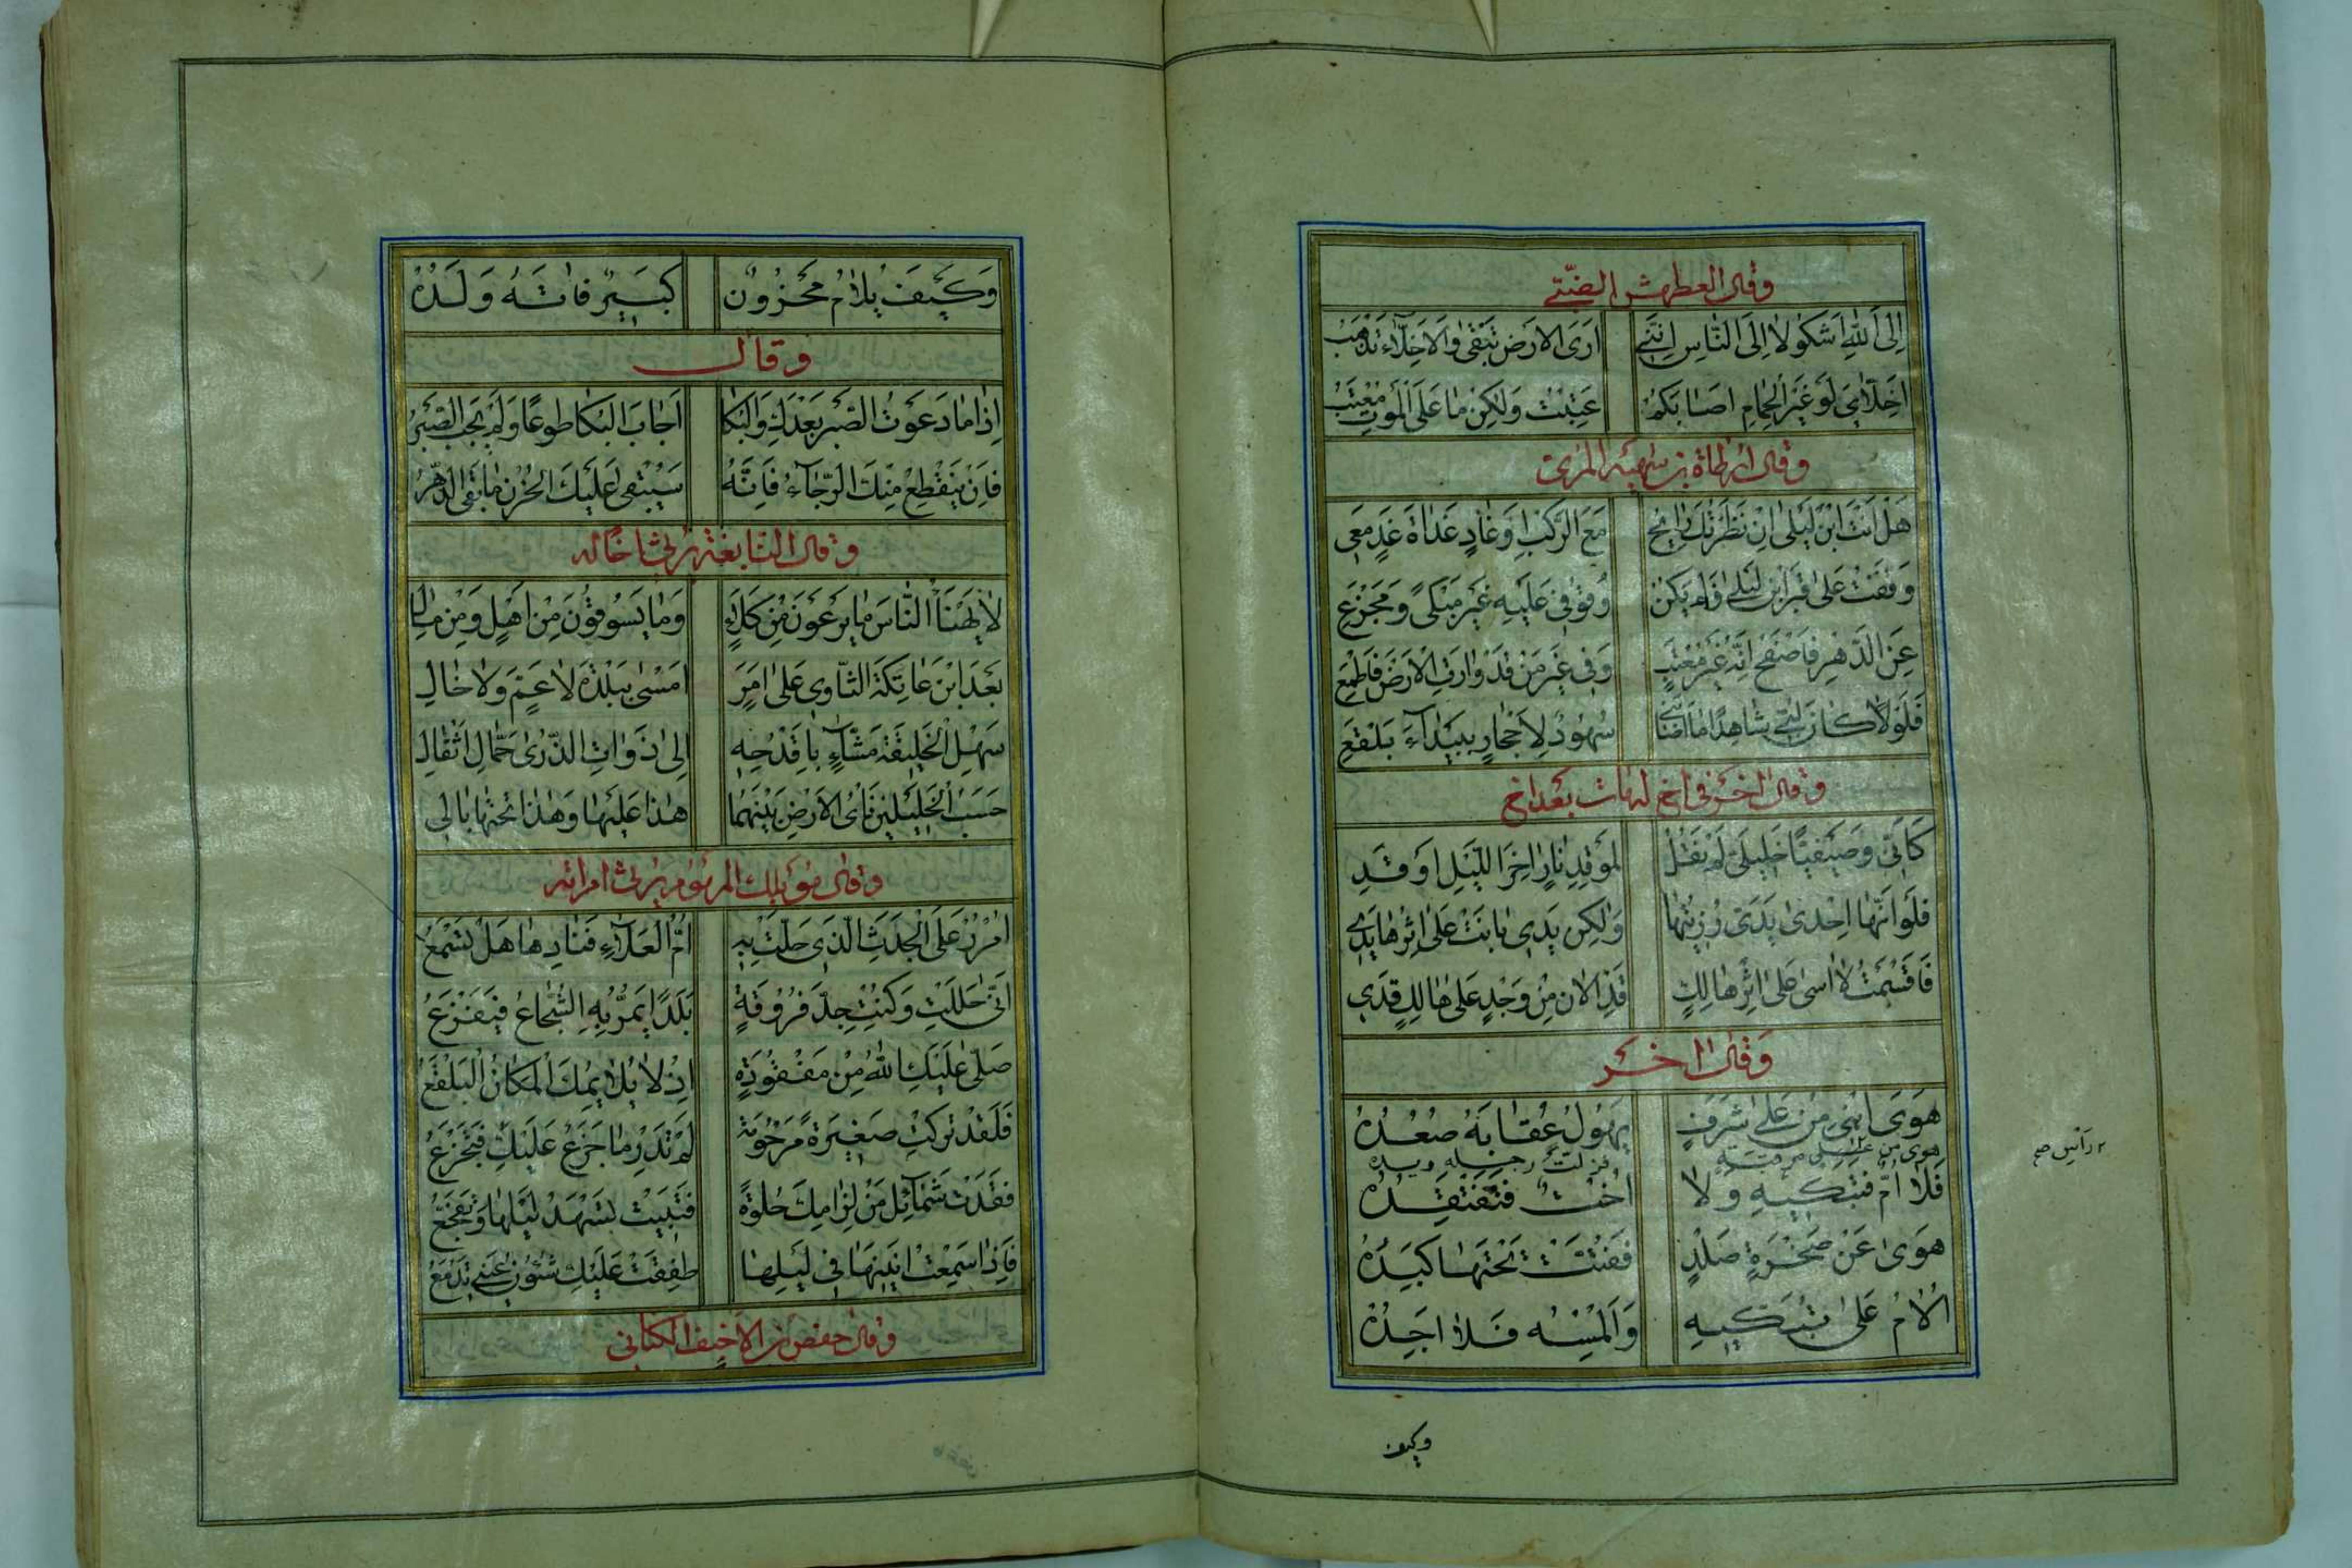 وقال العطمش الضبّي
اِلَى اللهِ اَشكُو لا اِلَى النّاسِ اِنَّنِي اَرَى الارَضَ تَبْقىٰ وَالاَخِلّآءَ تَذْهَبُ
اَخِلّآيَ لَوْ غَيْرُ الحِمامِ اصَابَكمُ عَتِبْتُ وَلكِنْ مٰا عَلَى المَوتِ مُعْتَبُ
وقال ارطاة بن سهية المرىّ
هَلْ اَنتَ ابْنَ لَيْلى اِنْ نَظَرْتُكَ رٰايحٌ مَعَ الرَّكبِ اوَ غٰادٍ غَدٰاةَ غَدٍ مَعِى
وَقَفْتُ عَلىٰ قَبْرِ ابْنِ لَيْلىٰ فَلَم يَكنْ وُقوفِى عَلَيْهِ غَيْرَ مَبْكىً وَمَجْزَعِ
عَنِ الدَّهْرِ فَاصْفَحْ اِنَّهُ غَيْرُ مُعْتِبٍ وَفِى غَيْرِ مَنْ قَدْ وٰارَتِ الارَضُ فَاطْمَعِ
فَلَوْلا كانَ لُبِّي شاهِدًا مٰا اَصٰابَنِي سُهُودٌ لِاَحْجارٍ بِبَيْدٰآءَ بَلْقَعِ
وقال اخر فى اخ له مات بعد اخ
كَاَنِّى وَصَيْفيًّا خَليلىَ لَم نَقُلْ لِمُوقِدِ نٰارٍ اخِرَ اللّيْلِ اَوْقِدِ
فلَو اَنّهٰا اِحْدىٰ يَدَىَّ رُزِئتُهٰا وَلٰكِنْ يَدِى بٰانَتْ عَلىٰ اِثْرِهٰا يَدِى
فَاَقْسَمْتُ لا اٰسىٰ عَلىٰ اِثْرِ هٰالِكٍ قَدِ الاٰنَ مِنْ وَجْدٍ عَلىٰ هٰالِكٍ قَدِى
وَقال اٰخر
هَوَى ابْنِى مِنْ عَلىٰ شَرَفٍ يَهُولُ عُقٰابَهُ صُعُدُهْ
هوى من على مرقبة فزلت رجله ويده
فَلا اُمٌّ فَتَبْكيهِ وَلا اُخْتٌ فَتَفْتَقِدُهْ
هَوىٰ عَنْ صَخْرَةٍ صَلْدٍ فَفُتّتَتْ تَحْتَهٰا كَبِدُهْ
اُلامُ عَلىٰ تَبَكّيهِ وَاَلْمُسُه فَلا اَجِدُهْ
وكيف
وَكَيْفَ يُلامُ مَحْزُونٌ كَبيرٌ فاتَهُ وَلَدُهْ
وقال
اِذٰا مٰا دَعَوْتُ الصَّبْرَ بَعْدَكِ وَالبُكا اَجٰابَ البُكا طَوعًا وَلَم يُجِبِ الصَّبْرُ
فَاِنْ يَنْقَطِعْ مِنْكَ الرّجٰآءُ فَاِنَّهُ سَيَبْقى عَلَيْكَ الحُزْنُ مٰا بَقِىَ الدّهْرُ
وقال النابغة يرثى خاله
لا يَهْنَأِ النّاسَ مٰا يَرْعَوْنَ مِنْ كَلَاءٍ وَمٰا يَسُوقُونَ مِنْ اَهْلٍ وَمِنْ مٰالِ
بَعْدَ ابْنِ عٰاتِكَةَ الثّاوِى عَلىٰ اَمَرٍ اَمْسىٰ بِبَلْدَةِ لا عَمٍّ وَلا خٰالِ
سَهْلِ الْخَليقَةِ مَشّآءٍ بِاَقْدُحِهِ اِلىٰ ذَوٰاتِ الذُّرىٰ حَمّالِ اَثْقٰالِ
حَسْبُ الْخَليلَيْنِ نَأىُ الاَرْضِ بَيْنَهُمٰا هٰذا عَلَيْهٰا وَهٰذٰا تَحْتَهٰا بٰالِى
وقال مويلك المزموم يرثى امرأته
اُمْرُرْ عَلَى الْجَدَثِ الّذى حَلَّتْ بِهِ اُمُّ العَلآءِ فَنٰادِهٰا هَلْ تَسْمَعُ
اَنّى حَلَلْتِ وَكُنْتِ جِدَّ فَرُوقَةٍ بَلَدًا يَمُرُّ بِهِ الشُّجٰاعُ فَيَفْزَعُ
صَلّى عَلَيْكِ اللهُ مِنْ مَفْقُودَةٍ اِذْ لا يُلايِمُكِ الْمَكانُ الْبَلْقَعُ
فَلَقَدْ تَرَكتِ صَغيرَةً مَرْحُومَةً لَم تَدْرِ مٰا جَزَعٌ عَلَيْكِ فَتَجْزَعُ
فَقَدَتْ شَمٰآئِلَ مِنْ لِزٰامِكِ حُلْوَةً فَتَبيتُ تُسْهِدُ لَيْلَهٰا وَتَفَجَّعُ
فَاِذٰا سَمِعْتُ اَنينَهٰا فى لَيْلِهٰا طَفِقَتْ عَلَيْكِ شُئُونُ عَيْنِى تَدْمَعُ
وقال حفص بن الاخيف الكنانى